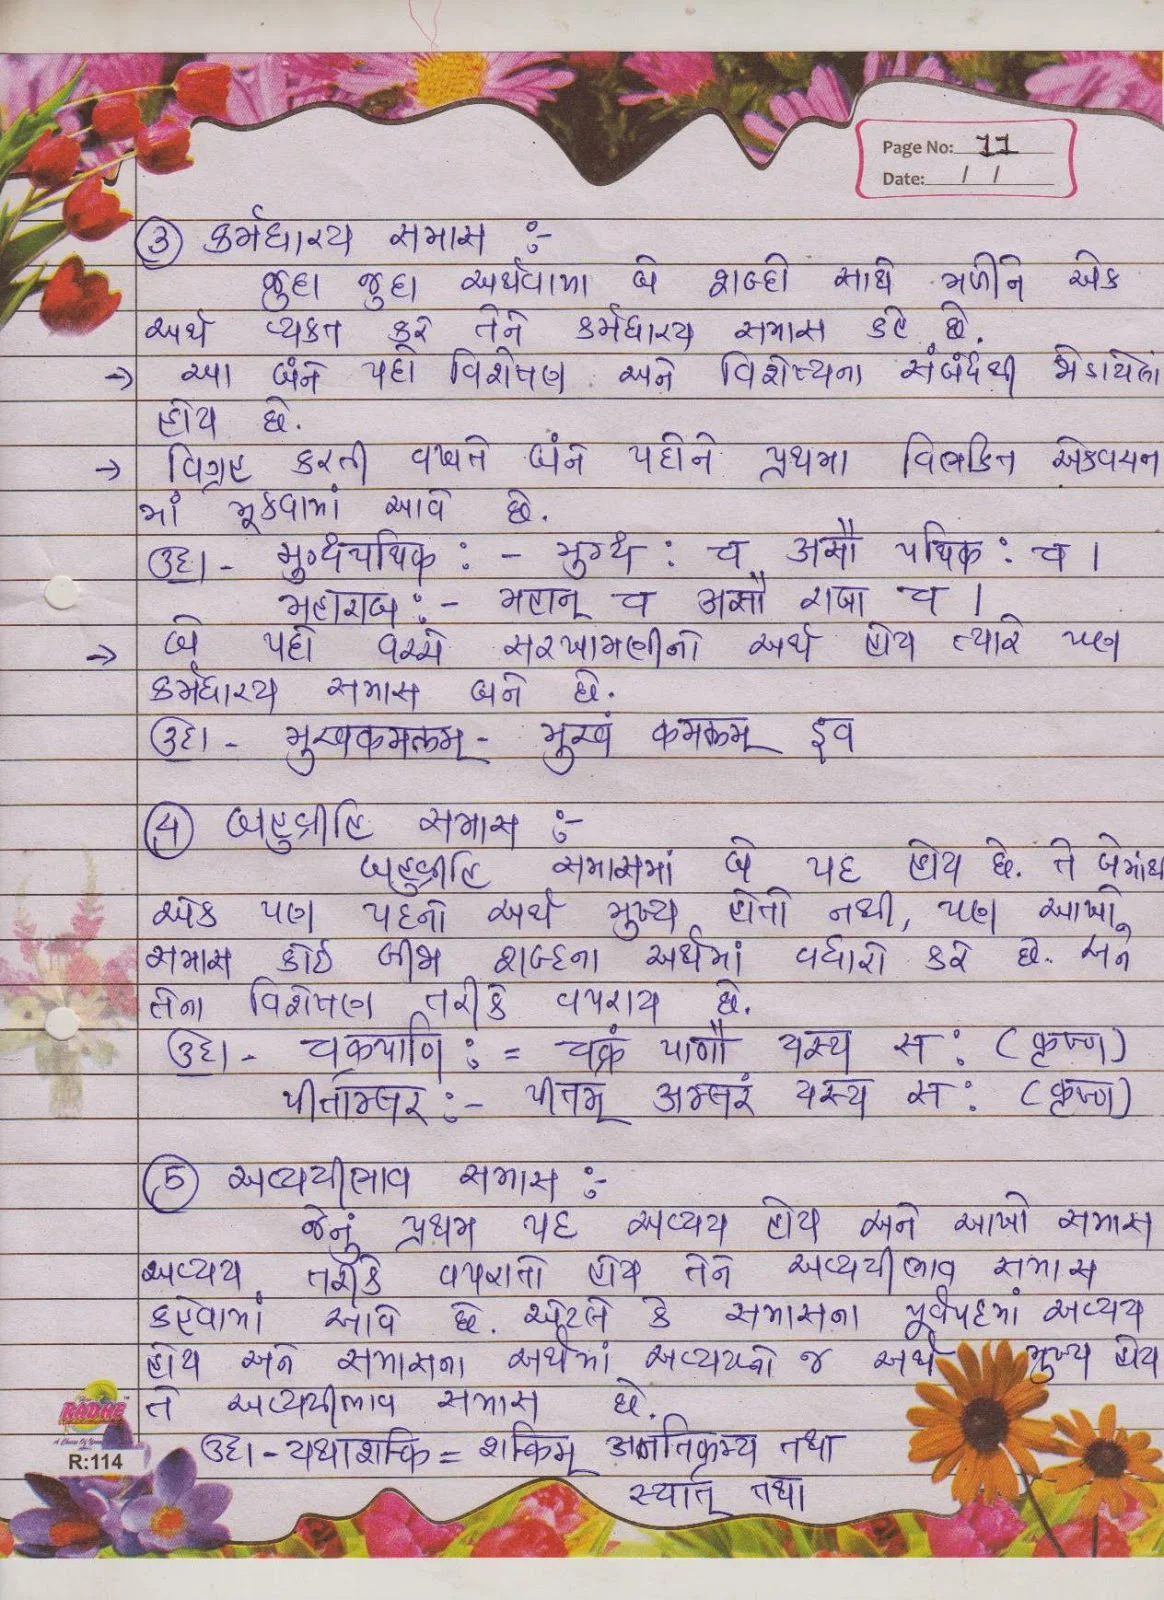 Page No: 11
Date: / /
③ કર્મધારય સમાસ :-
જુદા જુદા અર્થવાળા બે શબ્દો સાથે મળીને એક
અર્થ વ્યકત કરે તેને કર્મધારય સમાસ કહે છે.
→ આ બંને પદો વિશેષણ અને વિશેષ્યના સંબંધથી જોડાયેલાં
હોય છે.
→ વિગ્રહ કરતી વખતે બંને પદોને પ્રથમા વિભકિત એકવચન
માં મૂકવામાં આવે છે.
ઉદા - मुग्धपथिक: - मुग्ध: च असौ पथिक: च ।
महाराज: - महान् च असौ राजा च ।
→ બે પદો વચ્ચે સરખામણીનો અર્થ હોય ત્યારે પણ
કર્મધારય સમાસ બને છે.
ઉદા - मुखकमलम् - मुखं कमलम् इव
④ બહુવ્રીહિ સમાસ :-
બહુવ્રીહિ સમાસમાં બે પદ હોય છે. તે બેમાંથ
એક પણ પદનો અર્થ મુખ્ય હોતો નથી, પણ આખો
સમાસ કોઈ બીજા શબ્દના અર્થમાં વધારો કરે છે. અને
તેના વિશેષણ તરીકે વપરાય છે.
ઉદા - चक्रपाणि: = चक्रं पाणौ यस्य स: (कृष्ण)
पीताम्बर: - पीतम् अम्बरं यस्य स: (कृष्ण)
⑤ અવ્યયીભાવ સમાસ :-
જેનું પ્રથમ પદ અવ્યય હોય અને આખો સમાસ
અવ્યય તરીકે વપરાતો હોય તેને અવ્યયીભાવ સમાસ
કહેવામાં આવે છે. એટલે કે સમાસના પૂર્વપદમાં અવ્યય
હોય અને સમાસના અર્થમાં અવ્યયનો જ અર્થ મુખ્ય હોય
તે અવ્યયીભાવ સમાસ છે.
ઉદા - यथाशक्ति = शक्तिम् अनतिक्रम्य तथा
स्यात् तथा
RADHE
R:114